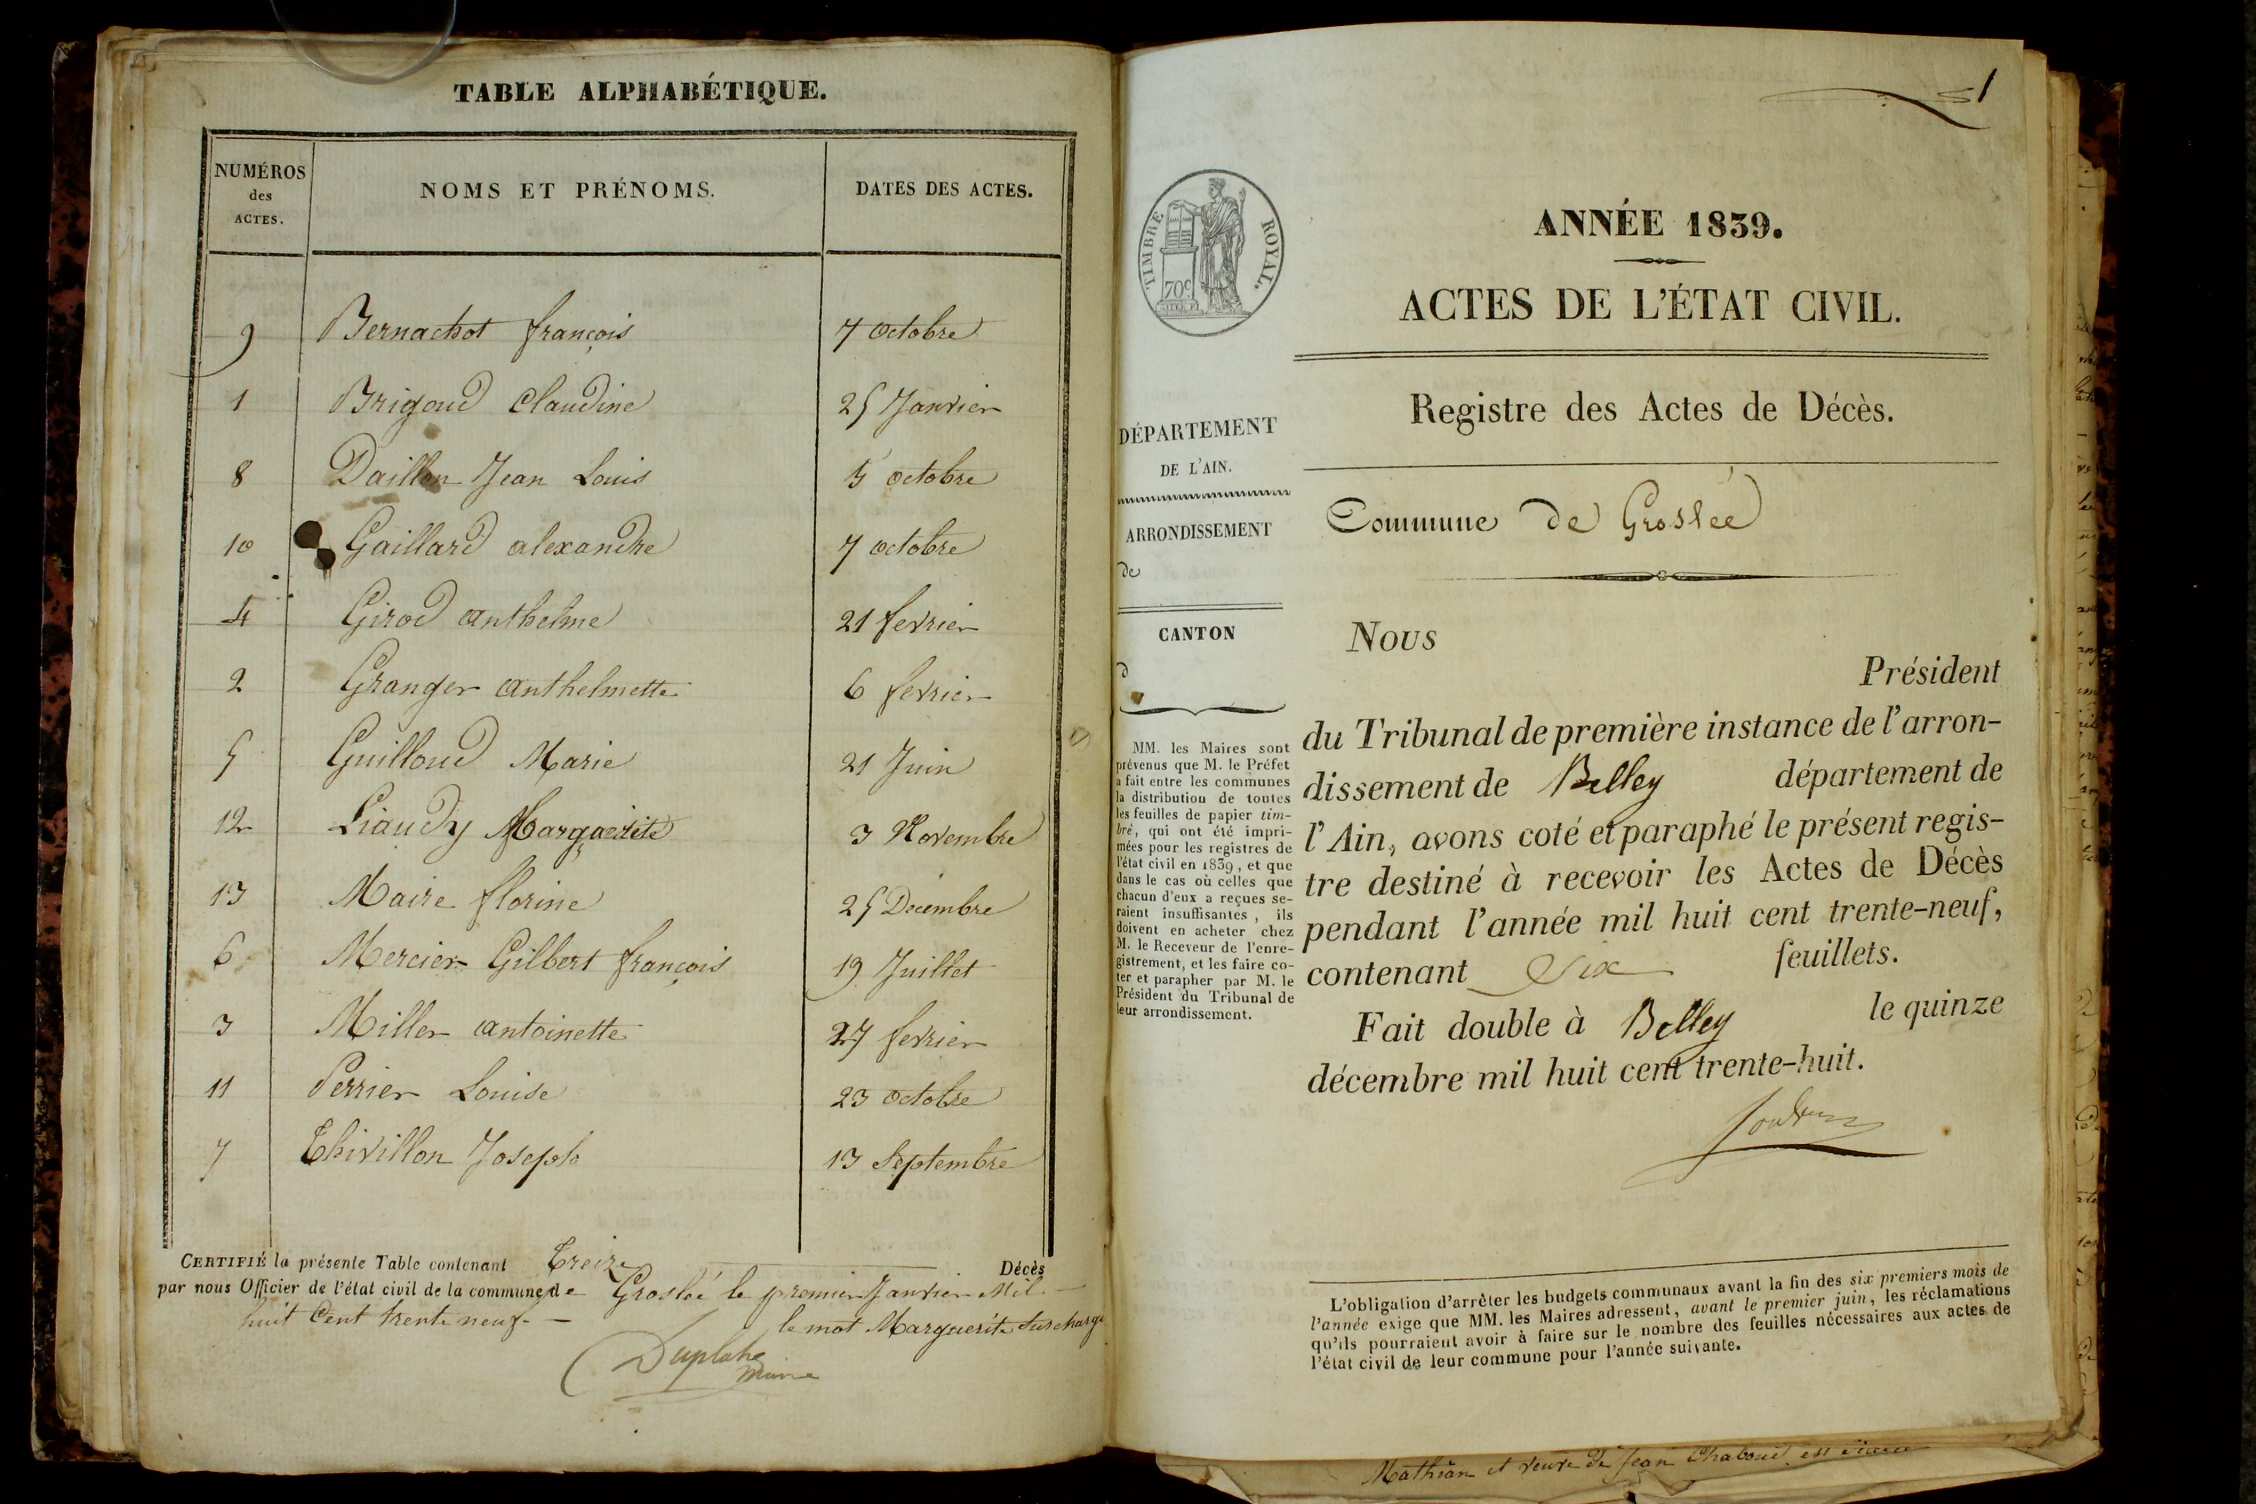 TABLE ALPHABÉTIQUE.
NUMÉROS
des
ACTES.
NOMS ET PRÉNOMS.
DATES DES ACTES.
9 Bernachot françois 7 octobre
1 Brigoud Claudine 25 Janvier
8 Daillon Jean Louis 5 octobre
10 Gaillard alexandre 7 octobre
4 Girod anthelme 21 fevrier
2 Granger anthelmette 6 fevrier
5 Guilloud Marie 21 Juin
12 Liaudy Marguerite 3 Novembre
13 Maire florine 25 Decembre
6 Mercier Gilbert françois 19 Juillet
3 Miller antoinette 27 fevrier
11 Perrier Louise 23 octobre
7 Thivillon Joseph 13 Septembre
CERTIFIÉ la présente Table contenant Treize Décès
par nous Officier de l'état civil de la commune de Groslée le premier Janvier Mil
huit Cent trente neuf
le mot Marguerite Surchargé
Maire
1
TIMBRE ROYAL.
70c
ANNÉE 1839.
ACTES DE L'ÉTAT CIVIL.
Registre des Actes de Décès.
Commune de Groslée
DÉPARTEMENT
DE L'AIN.
ARRONDISSEMENT
de
CANTON
d
MM. les Maires sont
prévenus que M. le Préfet
a fait entre les communes
la distribution de toutes
les feuilles de papier tim-
bré, qui ont été impri-
mées pour les registres de
l'état civil en 1839, et que
dans le cas où celles que
chacun d'eux a reçues se-
raient insuffisantes, ils
doivent en acheter chez
M. le Receveur de l'enre-
gistrement, et les faire co-
ter et parapher par M. le
Président du Tribunal de
leur arrondissement.
Nous
Président
du Tribunal de première instance de l'arron-
dissement de Belley département de
l'Ain, avons coté et paraphé le présent regis-
tre destiné à recevoir les Actes de Décès
pendant l'année mil huit cent trente-neuf,
contenant Six feuillets.
Fait double à Belley le quinze
décembre mil huit cent trente-huit.
L'obligation d'arrêter les budgets communaux avant la fin des six premiers mois de
l'année exige que MM. les Maires adressent, avant le premier juin, les réclamations
qu'ils pourraient avoir à faire sur le nombre des feuilles nécessaires aux actes de
l'état civil de leur commune pour l'année suivante.
Mathian et veuve de Jean Chaboud est